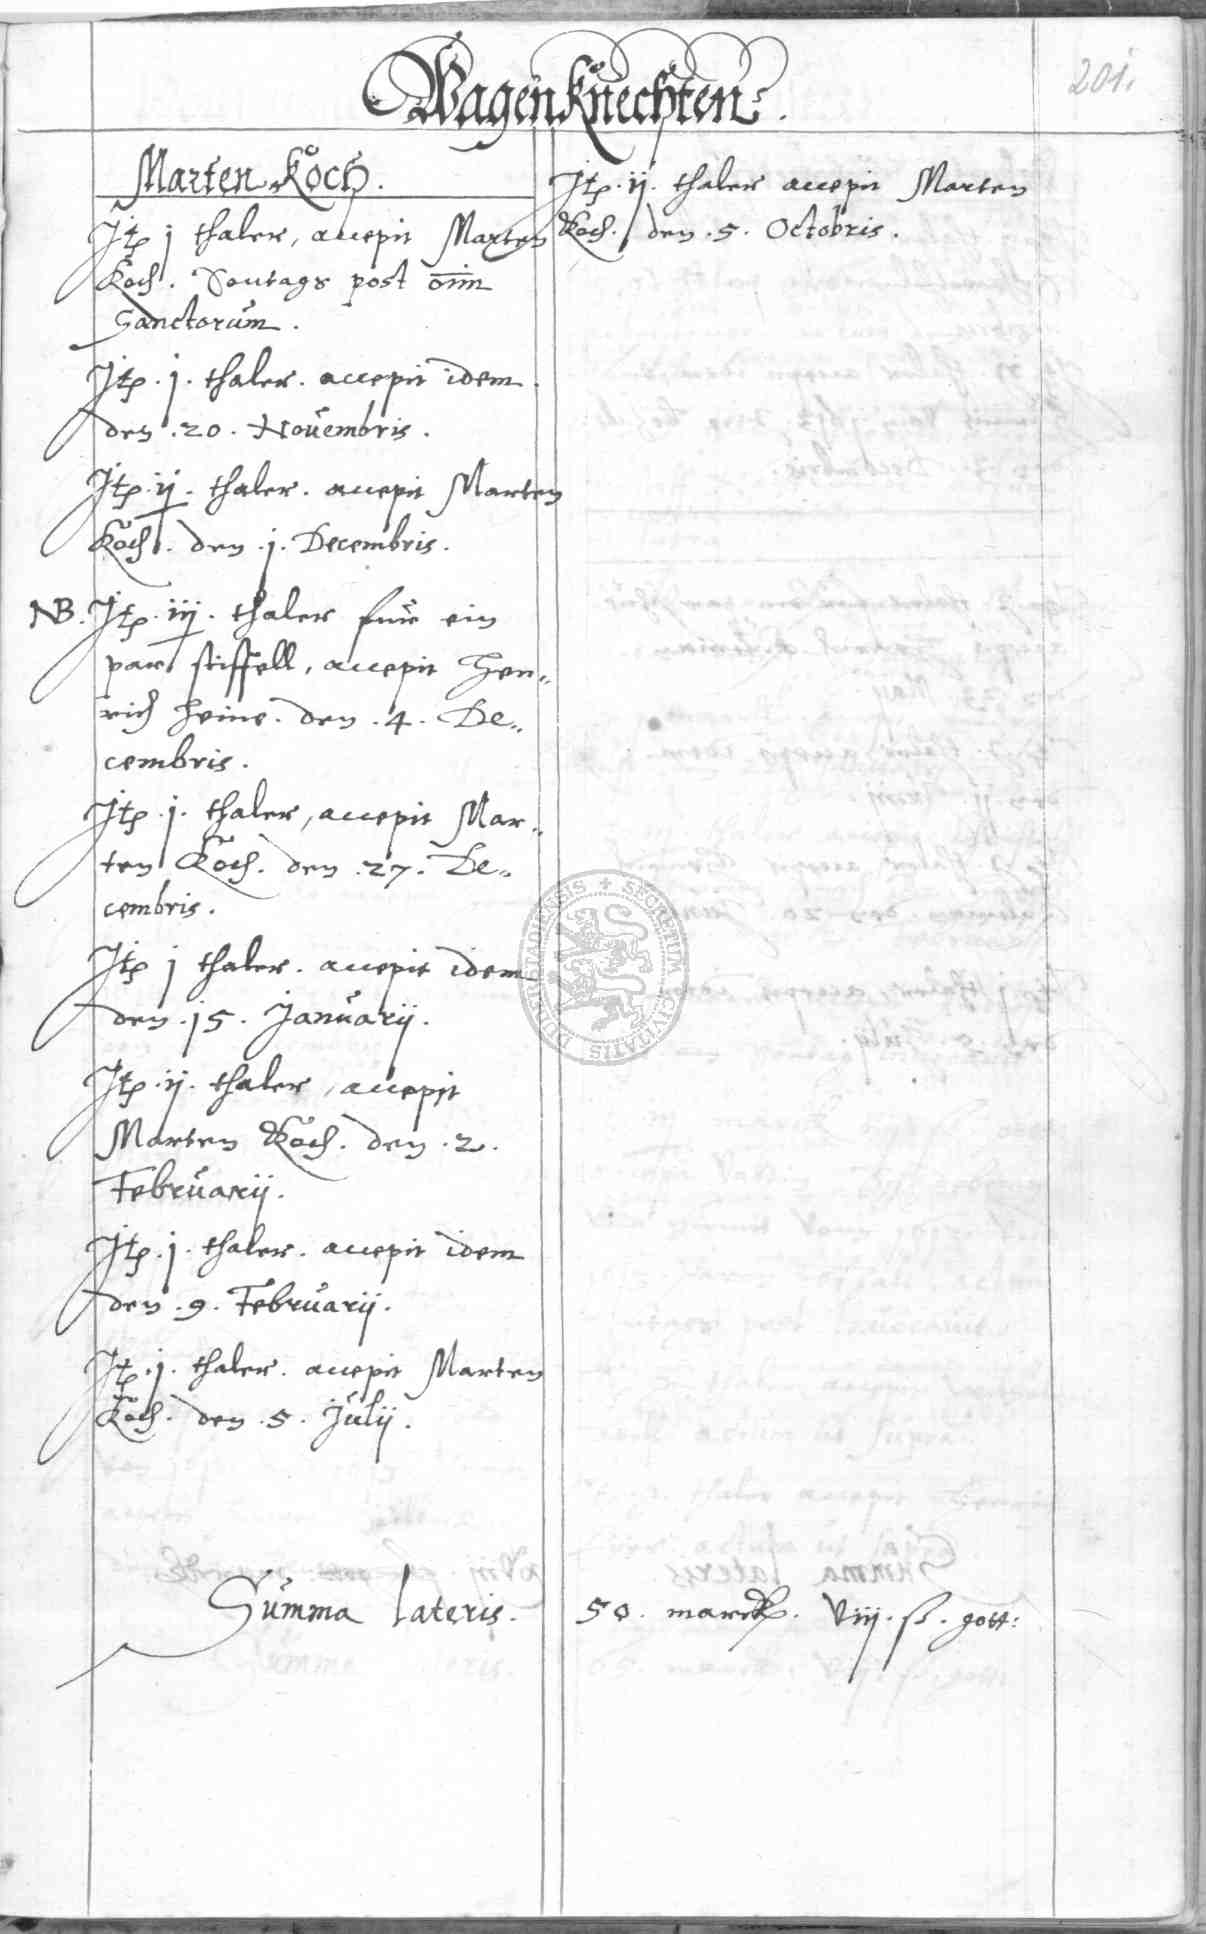 Wagenknechten.
201.
Marten Koch.
Jtp j thaler, accepit Marten
Koch. Sontags post om̄
Sanctorum.
Jtp. j. thaler. accepit idem.
den. 20. Novembris.
Jtp. ij. thaler. accepit Marten
Koch. den. j. Decembris.
NB. Jtp. iij. thaler fur ein
par stiffell, accepit Hen„
rich Heine. den. 4. De„
cembris.
Jtp. j. thaler, accepit Mar„
ten Koch. den. 27. De„
cembris.
Jtp j thaler. accepit idem
den. 15. Januarij.
Jtp. ij. thaler, accepit
Marten Koch. den. 2.
Februarij.
Jtp. j. thaler. accepit idem
den. 9. Februarij.
Jtp. j. thaler. accepit Marten
Koch. den. 5. Julij.
Jtp. ij. thaler accepit Marten
Koch. den. 5. Octobris.
SECRETUM CIVITATIS DUDERSTADIENSIS
Summa lateris. 50. marck. Viij. ß. gott: